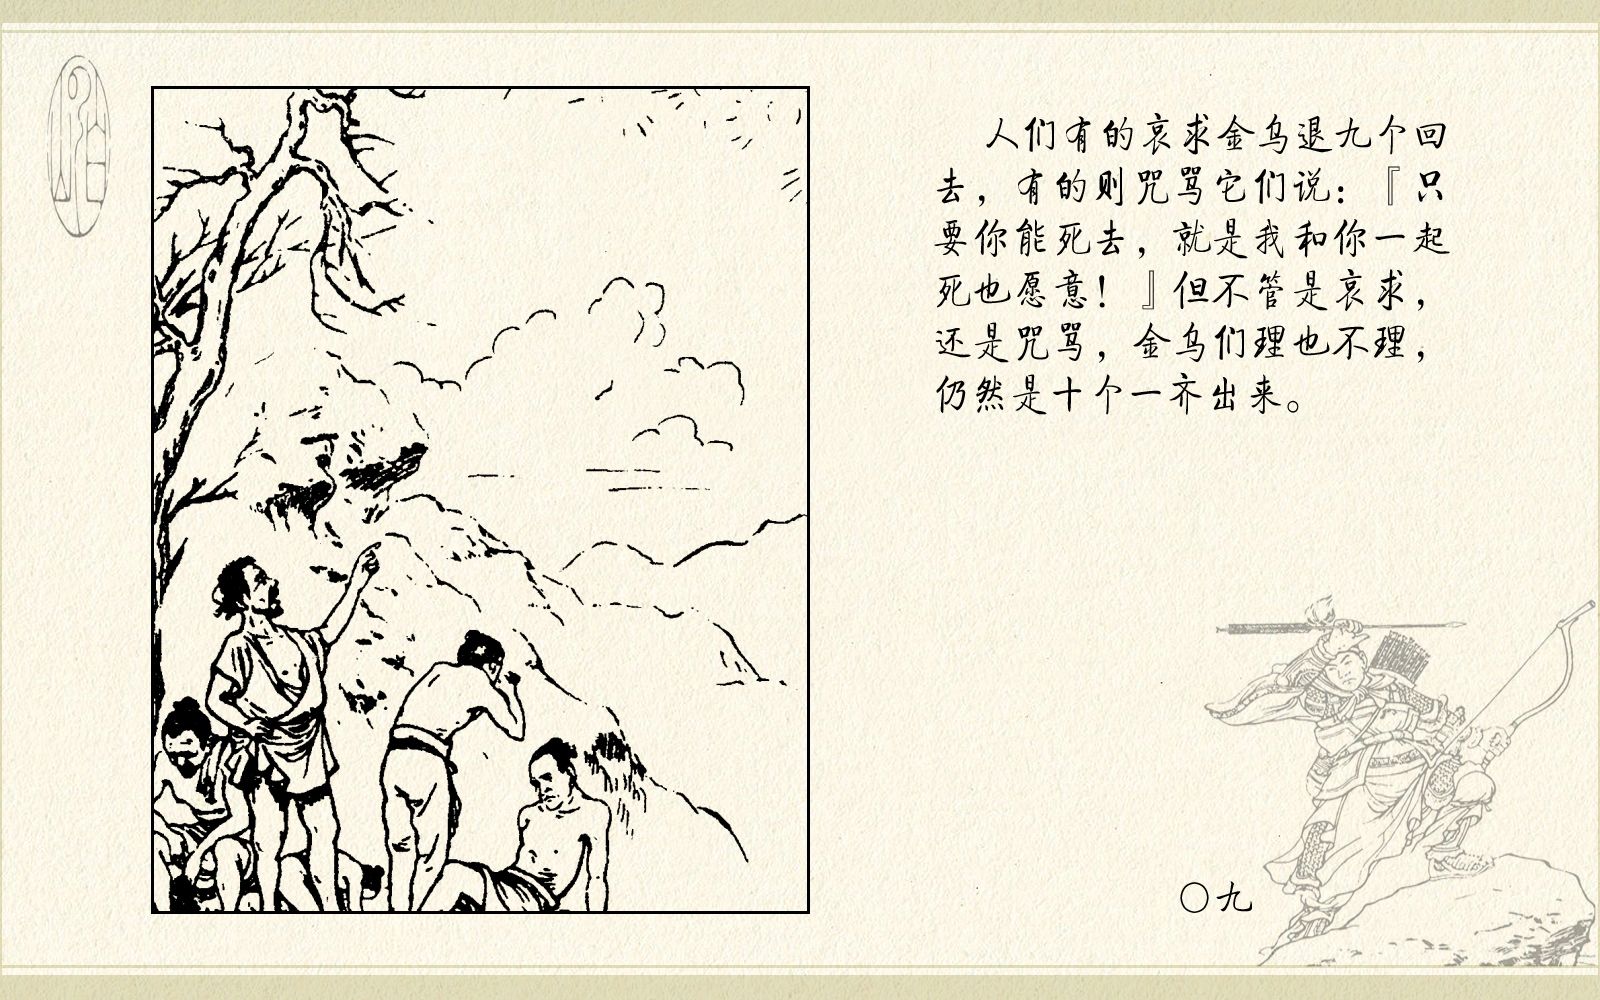 人们有的哀求金乌退九个回
去，有的则咒骂它们说：『只
要你能死去，就是我和你一起
死也愿意！』但不管是哀求，
还是咒骂，金乌们理也不理，
仍然是十个一齐出来。
〇九